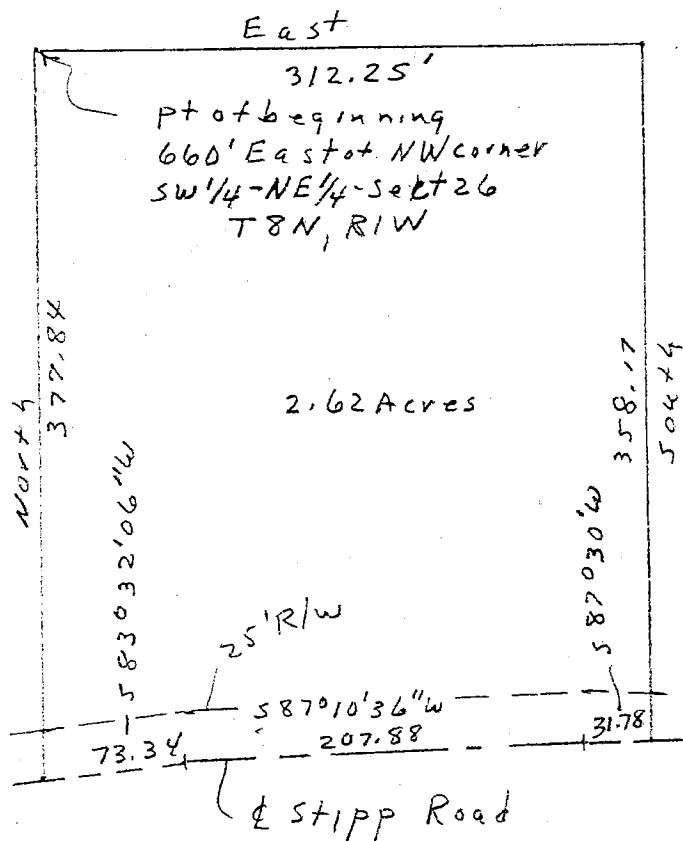 East
312.25'
pt of beginning
660' East of NW corner
SW 1/4 - NE 1/4 - Sect 26
T 8 N, R 1 W
North
377.84
2.62 Acres
358.17
South
S 83° 32' 06" W
S 87° 30' W
25' R/W
S 87° 10' 36" W
73.34
207.88
31.78
℄ Stipp Road